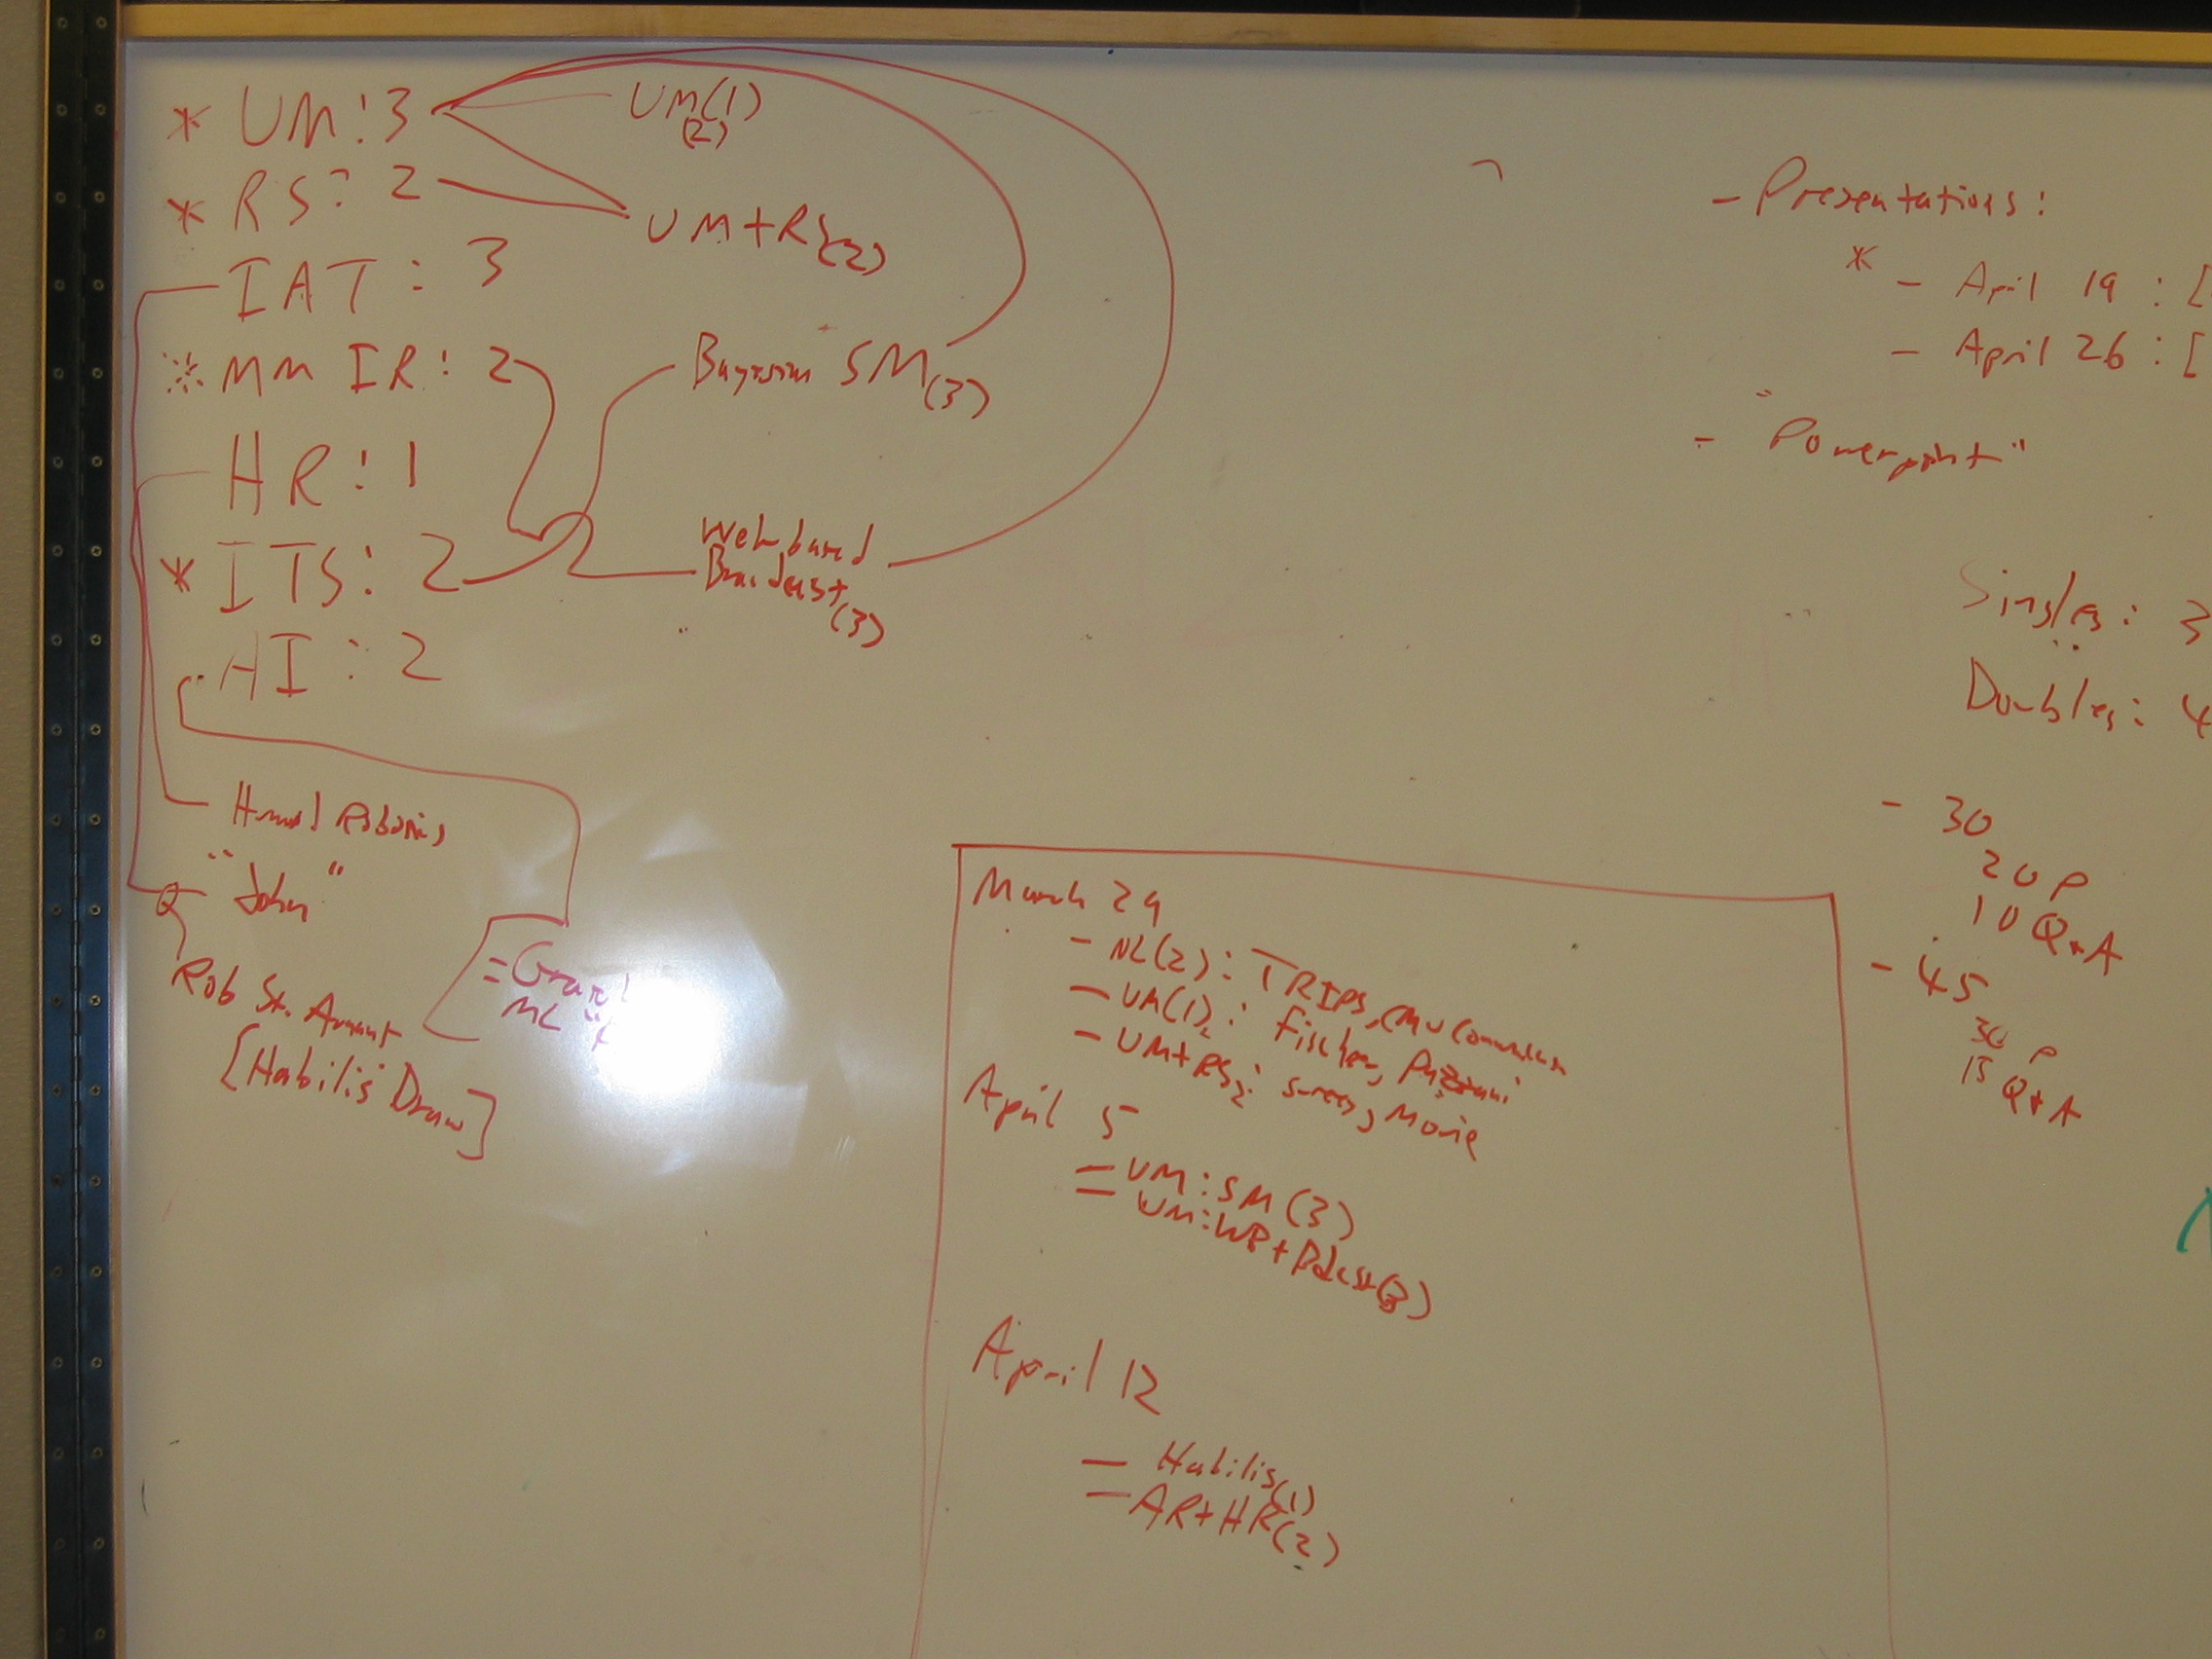 * UM: 3
* RS: 2
IAT: 3
* MM IR: 2
HR: 1
* ITS: 2
HI: 2
UM(1)
(2)
UM+RS(2)
Bayesian SM(3)
Web based
Broadcast
(3)
Robotics
"John"
Rob St. Amant
[Habilis Draw]
ML
March 29
- NL(2): TRIPS, CMU
- UM(1)2: Fischer, Pazzani
- UM+RS2: survey, Movie
April 5
- UM: SM (3)
- UM: WB+Bdcst(3)
April 12
- Habilis(1)
- AR+HR(2)
- Presentations:
* - April 19 : [
- April 26 : [
- "Powerpoint"
Singles: 3
Doubles: 4
- 30
20 P
10 Q+A
- 45
30 P
15 Q+A